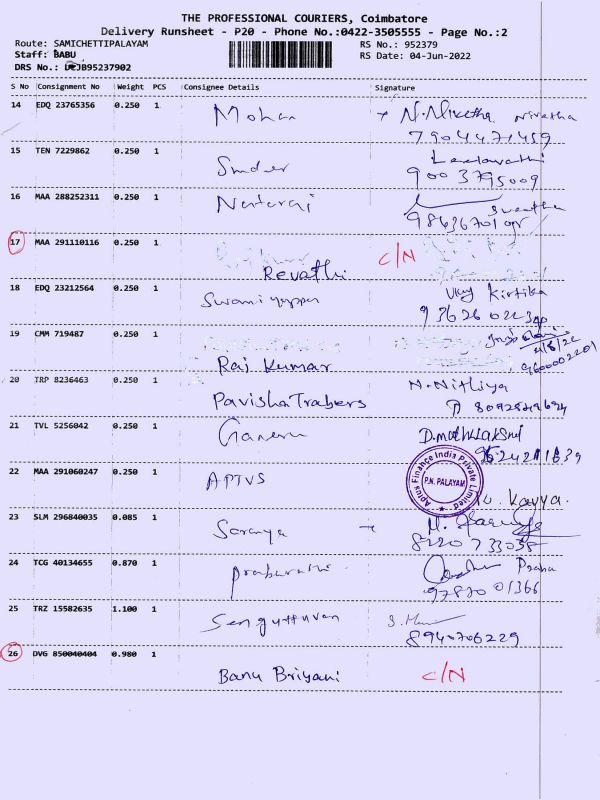 THE PROFESSIONAL COURIERS, Coimbatore
Delivery Runsheet - P20 - Phone No.:0422-3505555 - Page No.:2
Route: SAMICHETTIPALAYAM RS No.: 952379
Staff: BABU RS Date: 04-Jun-2022
DRS No.:
S No Consignment No Weight PCS Consignee Details Signature
14 EDQ 23765356 0.250 1 Mohan N. Nivetha nivetha
7904471459
15 TEN 7229862 0.250 1 Leelavathi
9003795009
16 MAA 288252311 0.250 1 Nataraj Swetha
17 MAA 291110116 0.250 1 C/N
Revathi
18 EDQ 23212564 0.250 1 Kirtika
19 CMM 719487 0.250 1
Raj Kumar 9600002201
20 TRP 8236463 0.250 1 N. Nithya
Pavisha Trabers
21 TVL 5256042 0.250 1
22 MAA 291060247 0.250 1 APTVS
Aptus Finance India Private Limited
P.N. PALAYAM
Kavya.
23 SLM 296840035 0.085 1 Saranya
8220733038
24 TCG 40134655 0.870 1 Praba
9787001366
25 TRZ 15582635 1.100 1 Senguttuvan
8940706229
26 DVG 850040404 0.980 1
Banu Briyani C/N